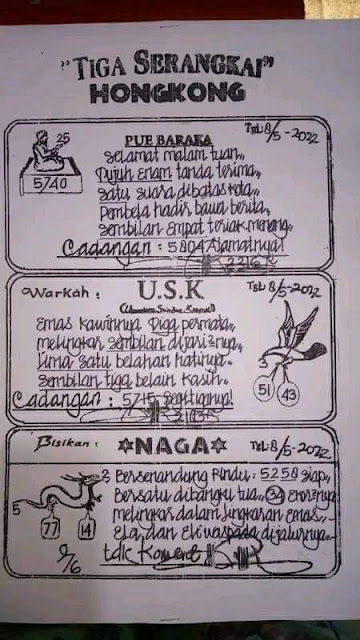 "TIGA SERANGKAI"
HONGKONG
25
5740
Tgl: 8/5-2022
PUE BARAKA
Selamat malam tuan,,
Pujuh Enam tanda terima,,
Satu suara dibatas kota,,
Pembela hadir bawa berita,
Sembilan Empat teriak menang,,
Cadangan : 5804 Alamatnya!
Warkah :
U.S.K
Tgl: 8/5-2022
Emas kawinnya Piga permata,,
melingkar sembilan dijarinya,,
Lima satu belahan hatinya.
Sembilan tiga belain kasih.
Cadangan : 5715
3
51 43
Bisikan :
NAGA
Tgl: 8/5-2022
Bersenandung Rindu : 5258 siap,,
Bersatu dibangku tua,, 34
melingkar dalam lingkaran emas,,
Ela, dan Eli waspada dijalurnya,,
tdk Koment
2
5
77 14
2/6